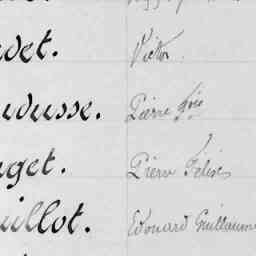 det. Victor
udusse. Pierre
uget. Pierre Félix
uillot. Edouard Guillaume